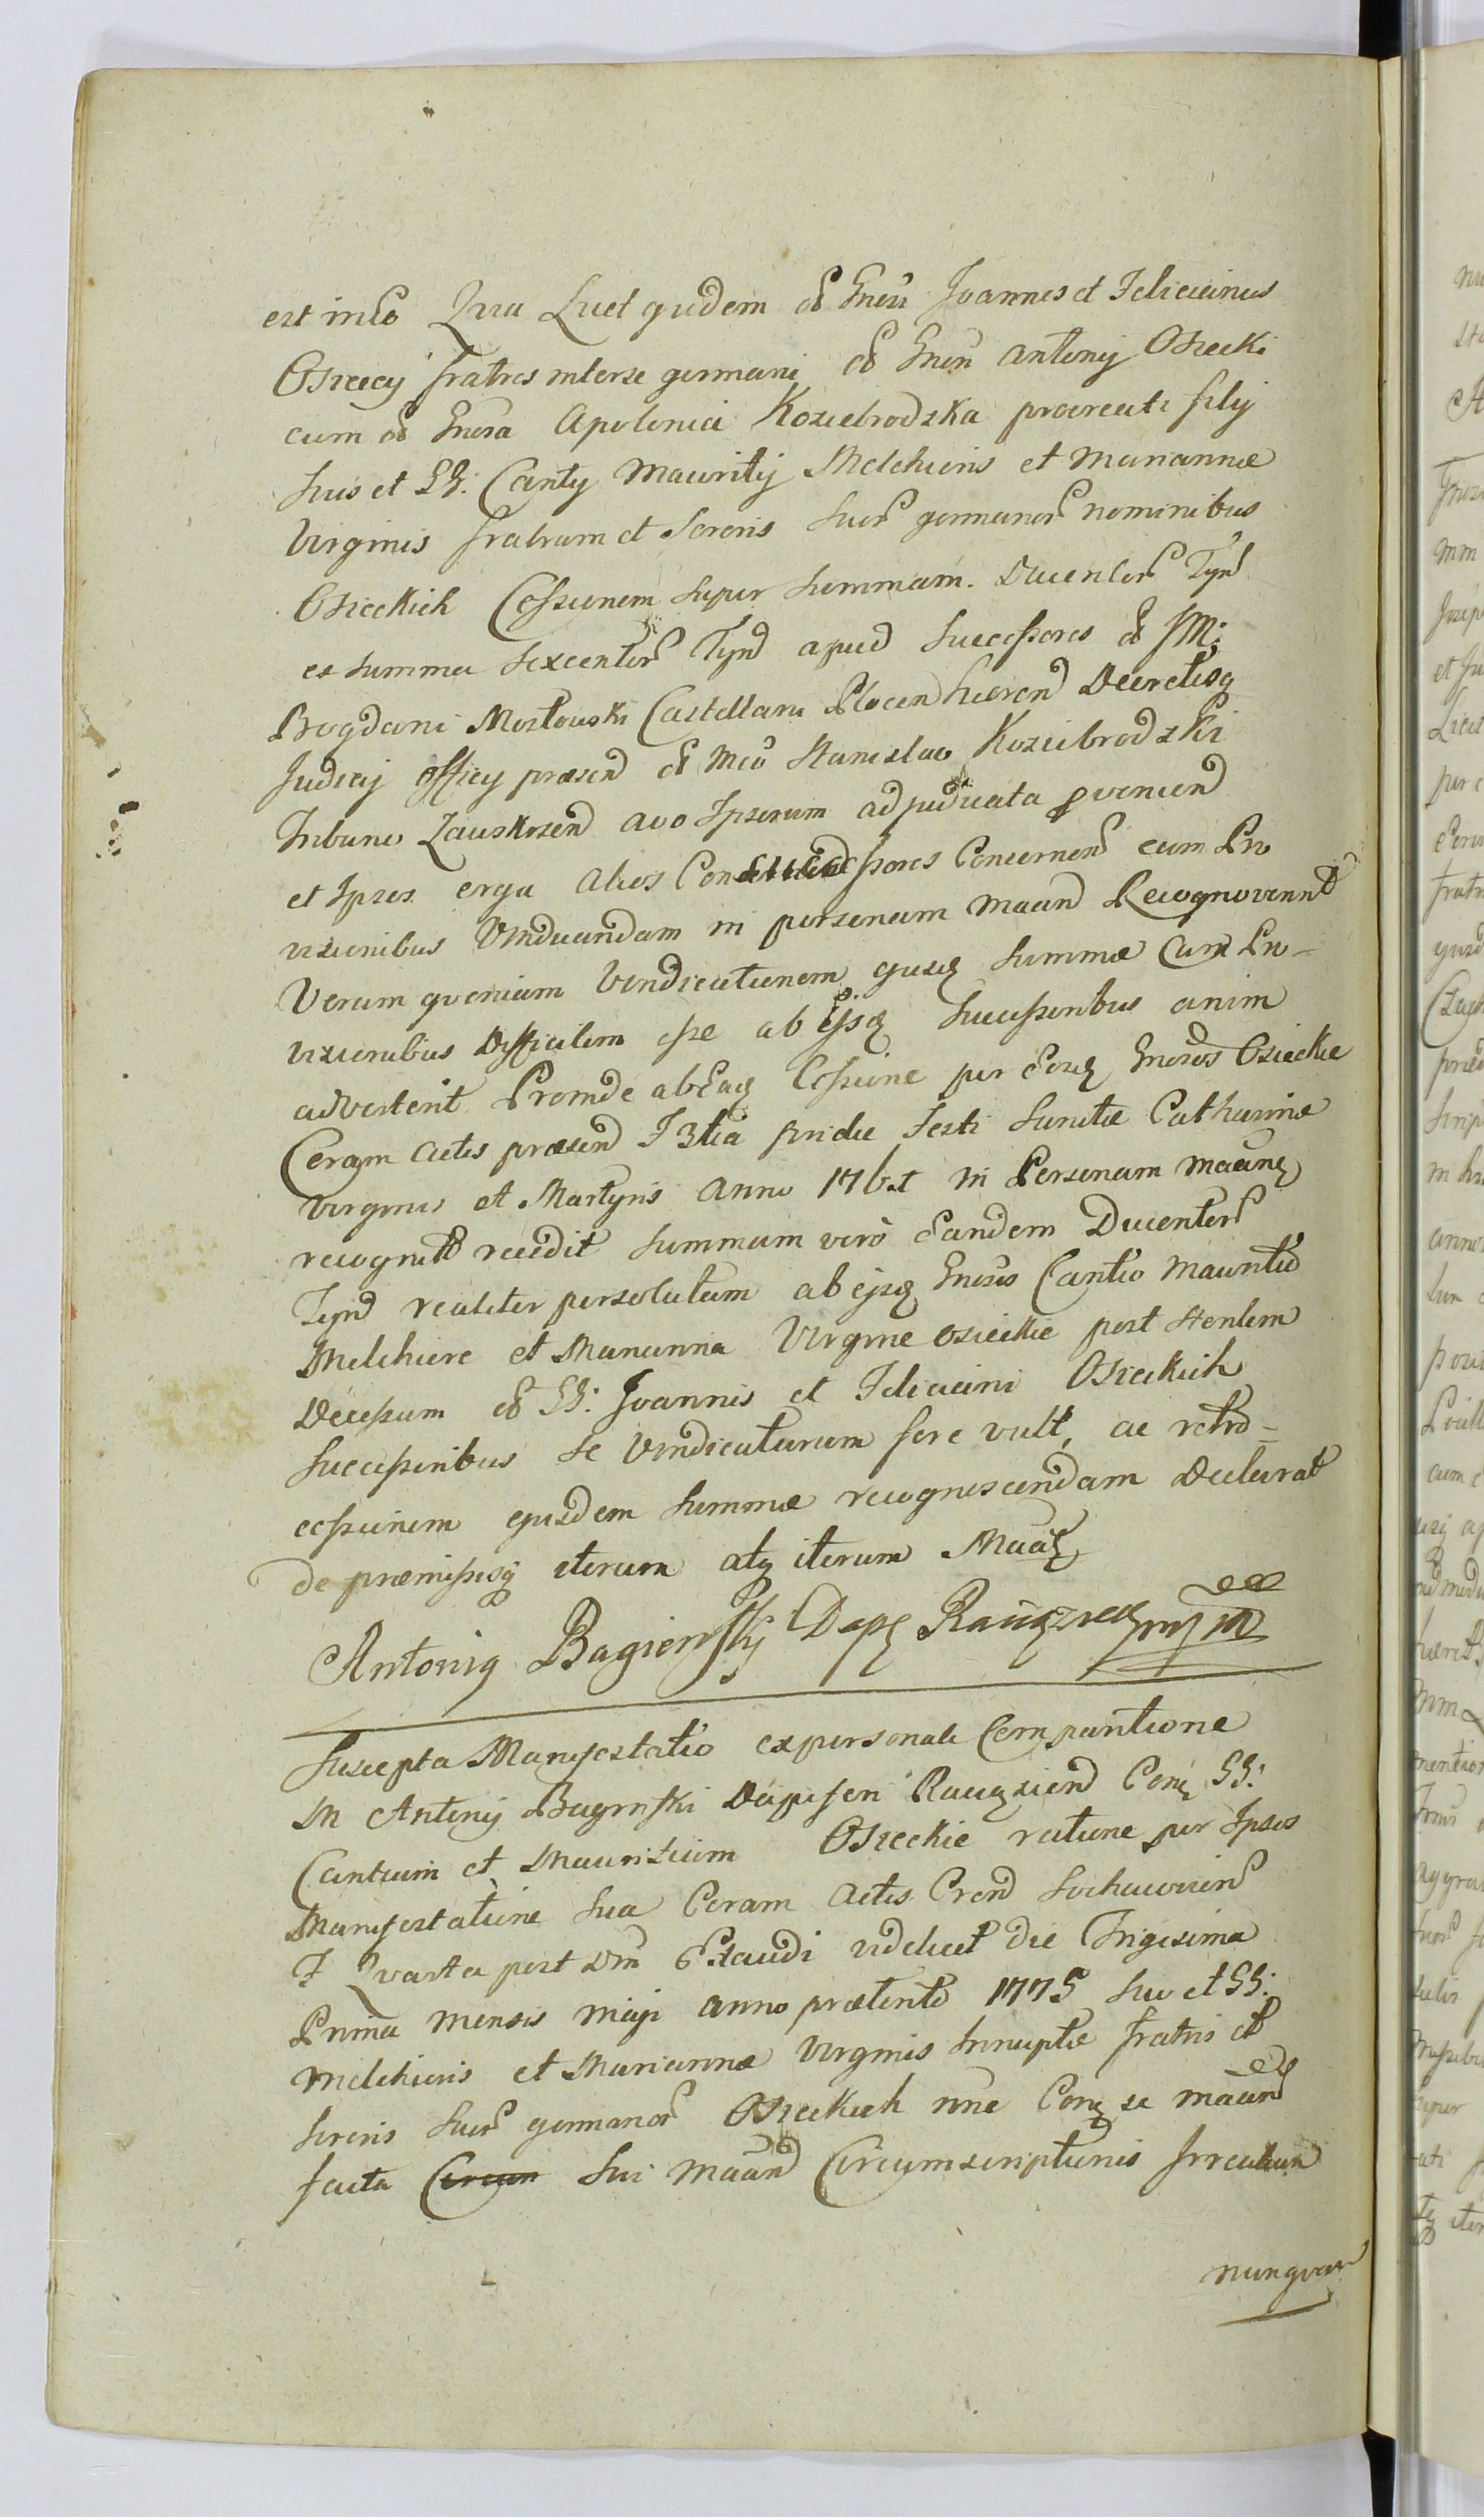 est in eo Qua Licet quidem olim Gnosi Joannes et Felicianus
Osieccy fratres interse germani olim Gnosi Antonij Osiecki
cum olim Gnosa Apolonia Koziebrodzka procreati filij
suis et GG. Canty Mauritij Melchioris et Mariannæ
Virginis fratrum et Sororis suor germanor nominibus
Osieckich Cessionem super summam Ducentor Tynf
ex summa sexcentor Tynf apud Successores olim JM:
Bogdani Mostowski Castellani Plocen hæren Decretisq
Judicij Officij præsen olim Mco Stanislao Koziebrodzki
Tribuno Zauskrzen avo Ipsorum adjudicata provenien
et Ipsos erga alios Consuccessores Concernen cum Pro
visionibus Vindicandam in personam Maan Recognoverint
Verum quoniam Vindicationem ejusq summæ Cum Pro-
visionibus Difficilem esse ab ejsq Successoribus anim
adverterit Proinde ab Eaq Cessione per Eosq Gnosos Osieckie
Coram Actis præsen F 3tia pridie Festi Sanctæ Catharinæ
Virginis et Martyris Anno 1761 in Personam Maanq
recognita recedit summam vero Eandem Ducentor
Tynf realiter persolutam ab ejsq Gnosis Cantio Mauritio
Melchiore et Marianna Virgine Osieckie post sterilem
Decessum olim GG: Joannis et Feliciani Osieckich
Successoribus se Vindicaturum fore vult, ac retro-
cessionem ejusdem summæ recognoscendam Declarat
de præmissisq iterum atq iterum Maatq
Antonig Bagieńsky Dapq Rawq mp
Suscepta Manifestatio ex personali Comparitione
M Antonij Bagieński Dapiferi Rawzien Conq GG:
Cantium et Mauritium Osieckie ratione per Ipsos
Manifestatione sua Coram Actis Cren Sochaczovien
F Quarta post Dm Exaudi videlicet die Trigesima
Prima mensis maji anno præterito 1775 suo et GG:
Melchioris et Mariannæ Virginis Innuptæ fratris et
Sororis suor germanor Osieckich nne Conq se maan
facta Circum sui Maan Circumscriptionis
nunquam